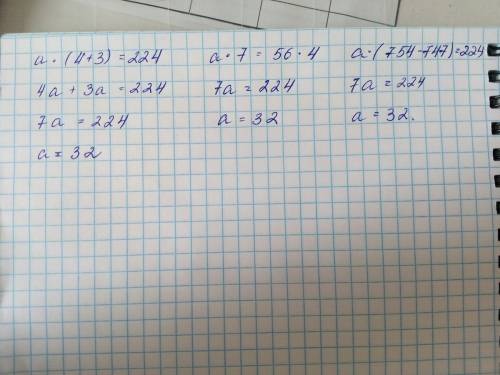 a · (4+3) = 224
4a + 3a = 224
7a = 224
a = 32
a · 7 = 56 · 4
7a = 224
a = 32
a·(754-747)=224
7a = 224
a = 32.